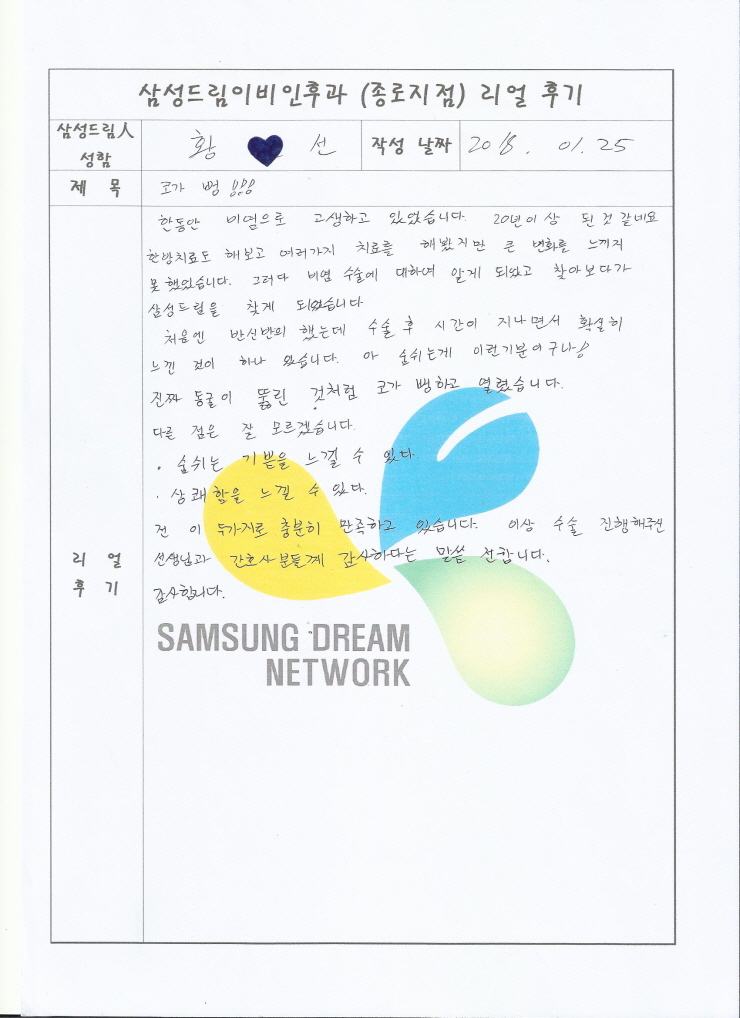 삼성드림이비인후과 (종로지점) 리얼 후기
삼성드림人 성함
황 선
작성 날짜
2018. 01. 25
제 목
코가 뻥 !!!
리 얼 후 기
한동안 비염으로 고생하고 있었습니다. 20년이상 된 것 같네요
한방치료도 해보고 여러가지 치료를 해봤지만 큰 변화를 느끼지
못했었습니다. 그러다 비염 수술에 대하여 알게 되었고 찾아보다가
삼성드림을 찾게 되었습니다
처음엔 반신반의 했는데 수술 후 시간이 지나면서 확실히
느낀 것이 하나 있습니다. 아 숨쉬는게 이런기분이구나!
진짜 동굴이 뚫린 것처럼 코가 뻥하고 열렸습니다.
다른 점은 잘 모르겠습니다.
· 숨쉬는 기쁨을 느낄 수 있다
· 상쾌함을 느낄 수 있다.
전 이 두가지로 충분히 만족하고 있습니다. 이상 수술 진행해주신
선생님과 간호사분들께 감사하다는 말씀 전합니다.
감사합니다.
SAMSUNG DREAM
NETWORK